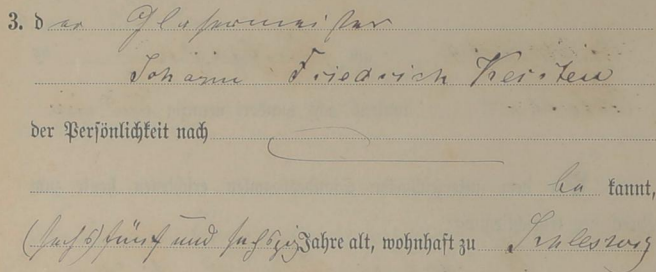 3. der Glasermeister
Johann Friedrich Kersten
der Persönlichkeit nach
be kannt,
(sechs) fünf und sechszig Jahre alt, wohnhaft zu Schleswig